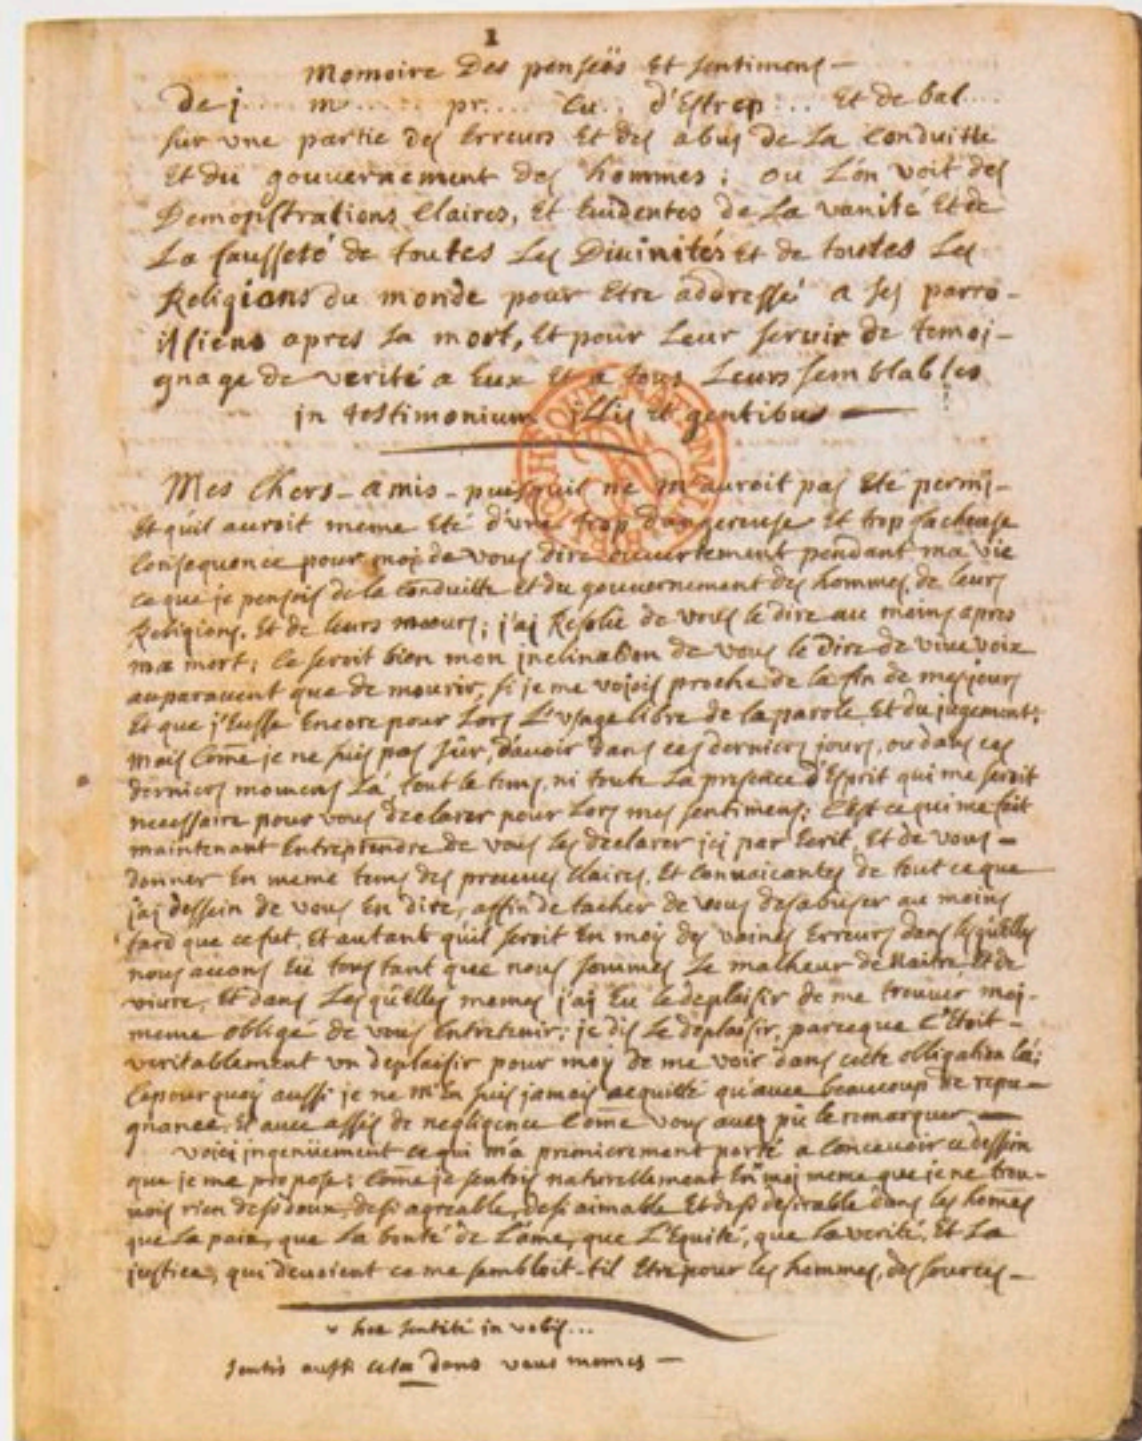 1
Memoire Des penseës Et sentimens –
de j.... m..... pr.... cu.. d'Estrep... Et de bal....
sur une partie des Erreurs Et des abus de La Conduitte
Et du gouvernement des hommes; ou L'on voit des
Demonstrations Claires, Et Evidentes de La vanité Et de
La fausseté de toutes Les Divinités Et de toutes Les
Religions du monde pour Etre addressé a ses parro-
issiens apres sa mort, Et pour Leur servir de temoi-
gnage de verité a Eux Et a tous Leurs semblables
in testimonium illis et gentibus —
Mes Chers amis puisquil ne m'auroit pas Eté permis
Et qu'il auroit meme Eté d'une trop dangereuse Et trop facheuse
Consequence pour moi de vous dire ouvertement pendant ma vie
ce que je pensois de la conduitte Et du gouvernement des hommes, de leurs
Religions, Et de leurs mœurs; j'ai Resolu de vous le dire au moins apres
ma mort; Ce seroit bien mon inclination de vous le Dire de vive voix
auparavent que de mourir, si je me vojois proche de la fin de mes jours
Et que j'Eusse Encore pour Lors L'usage libre de la parole Et du jugement;
mais Come je ne suis pas sûr, d'avoir dans ces derniers jours, ou dans ces
derniers momens La tout le tems, ni toute La presence d'Esprit qui me seroit
necessaire pour vous declarer pour Lors mes sentimens; C'est ce qui me fait
maintenant Entreprendre de vous les declarer ici par Ecrit, Et de vous –
donner En meme tems des preuves Claires, Et Convaicantes de tout ce que
j'ai dessein de vous En dire, affin de tacher de vous desabuser au moins
tard que ce fut, Et autant qu'il seroit En moy des vaines Erreurs dans lesqu'Elles
nous avons Eü tous tant que nous sommes Le malheur de Naitre Et de
vivre, Et dans Lesqu'Elles memes j'ai Eu Le deplaisir de me trouver moi-
meme obligé de vous Entretenir; je dis Le deplaisir, parceque C'Etoit –
veritablement un deplaisir pour moy de me voir dans cette obligation la;
C'epourquoy aussi je ne m'En suis jamais acquitté qu'avec beaucoup de repu-
gnance, Et avec assés de negligence Come vous avez pû le remarquer —
voici ingenüement ce qui m'a premierement porté a concevoir ce dessein
que je me propose; Come je sentois naturellement En moi meme que je ne trou-
vois rien de si doux, de si agreable, de si aimable Et de si desirable dans les homes
que La paix, que La bonté de L'ame, que L'Equité, que La verité, Et La
justice, qui devoient ce me sembloit-til Etre pour les hommes, des sources –
v hoc sentite in vobis...
sentés aussi cela dans vous memes —